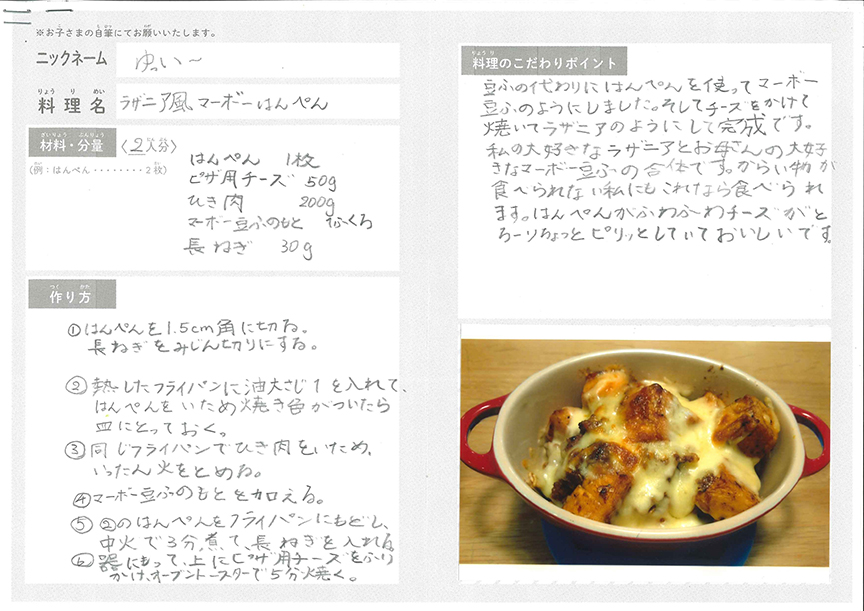 ※お子さまの自筆にてお願いいたします。
ニックネーム
ゆい～
りょう り めい
料理名
ラザニア風マーボーはんぺん
ざいりょう ぶんりょう
材料・分量
〈2人分〉
(例：はんぺん・・・・・・・・2枚)
はんぺん 1枚
ピザ用チーズ 50g
ひき肉 200g
マーボー豆ふのもと
長ねぎ 30g
つく かた
作り方
①はんぺんを1.5cm角に切る。
長ねぎをみじん切りにする。
②熱したフライパンに油大さじ1を入れて、
はんぺんをいため焼き色がついたら
皿にとっておく。
③同じフライパンでひき肉をいため、
いったん火をとめる。
④マーボー豆ふのもとを加える。
⑤②のはんぺんをフライパンにもどし、
中火で3分煮て、長ねぎを入れる。
⑥器にもって、上にピザ用チーズをふり
かけ、オーブントースターで5分焼く。
りょう り
料理のこだわりポイント
豆ふの代わりにはんぺんを使ってマーボー
豆ふのようにしました。そしてチーズをかけて
焼いてラザニアのようにして完成です。
私の大好きなラザニアとお母さんの大好
きなマーボー豆ふの合体です。からい物が
食べられない私にもこれなら食べられ
ます。はんぺんがふわふわチーズがと
ろーりちょっとピリッとしていておいしいです。